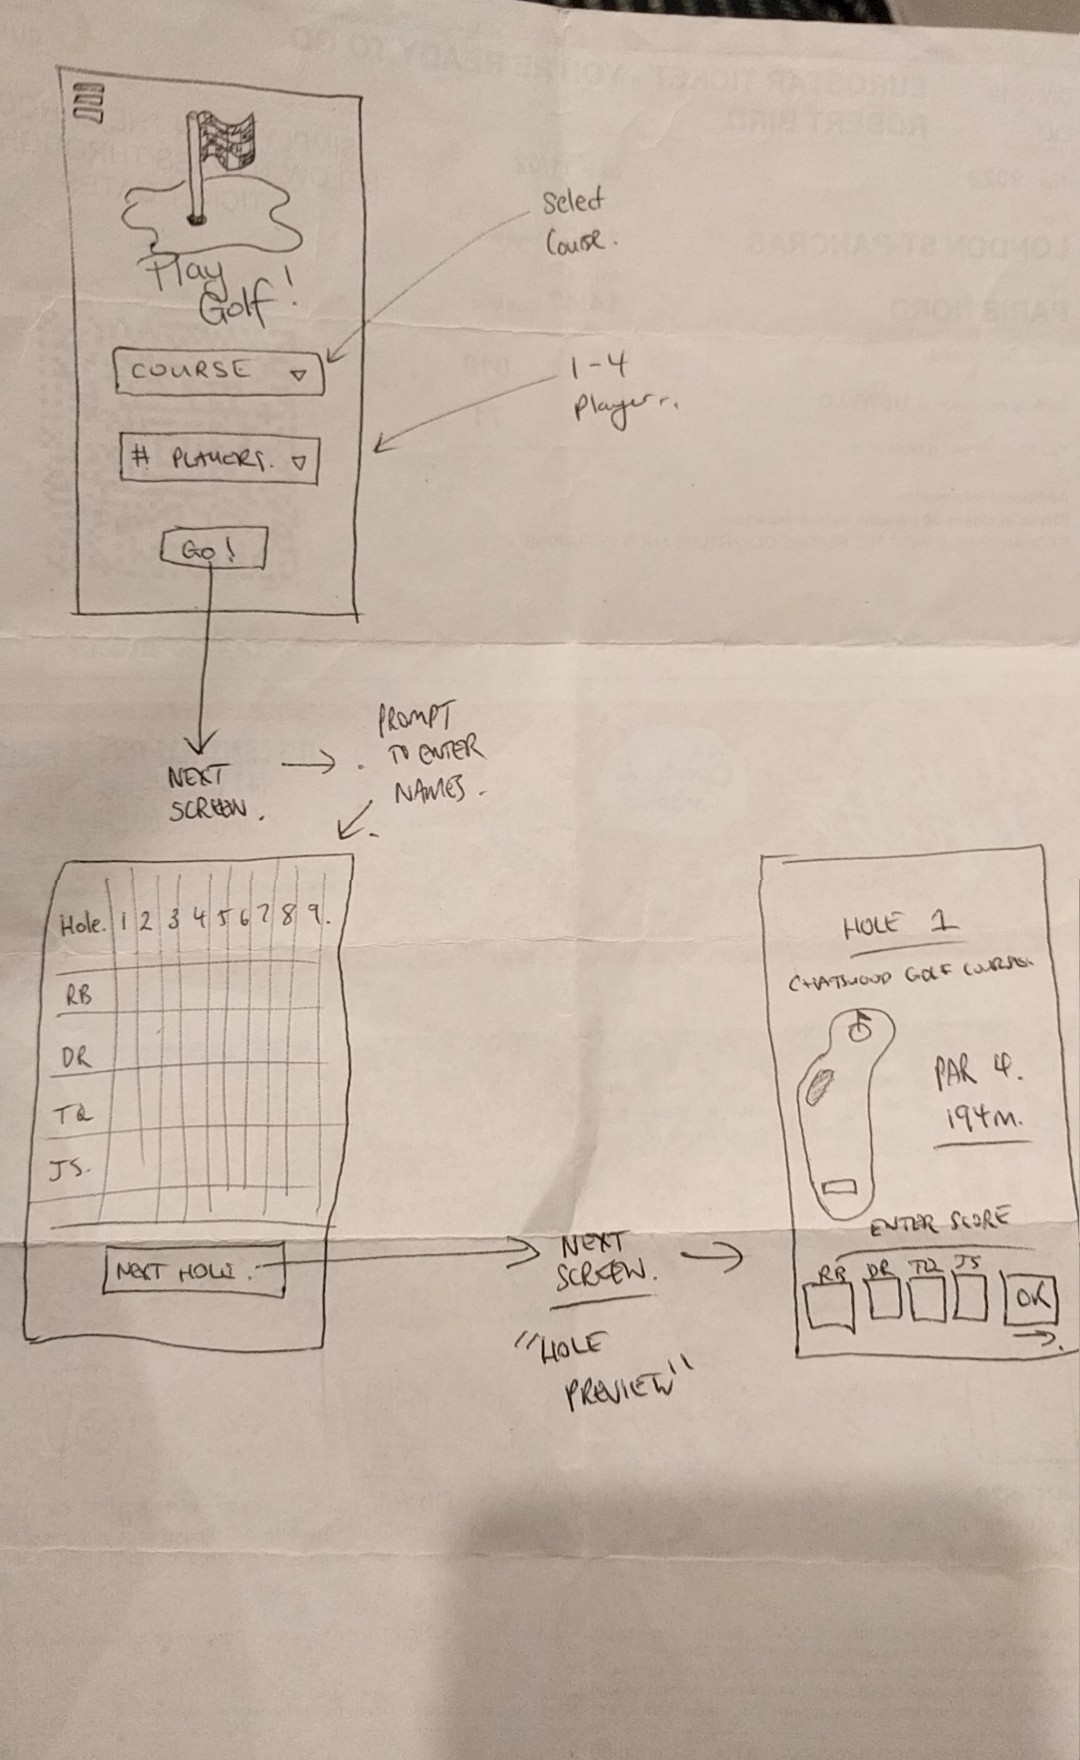 Play
Golf!
Select
Course.
COURSE
1-4
Players.
# PLAYERS.
Go!
NEXT
SCREEN.
PROMPT
TO ENTER
NAMES.
Hole. 1 2 3 4 5 6 7 8 9.
RB
DR
TQ
JS.
NEXT HOLE.
NEXT
SCREEN.
"HOLE
PREVIEW"
HOLE 1
CHATSWOOD GOLF COURSE.
PAR 4.
194m.
ENTER SCORE
RB DR TQ JS
OK
EUROSTAR TICKET - YOU'RE READY TO GO
ROBERT BIRD
LONDON ST-PANCRAS
PARIS NORD